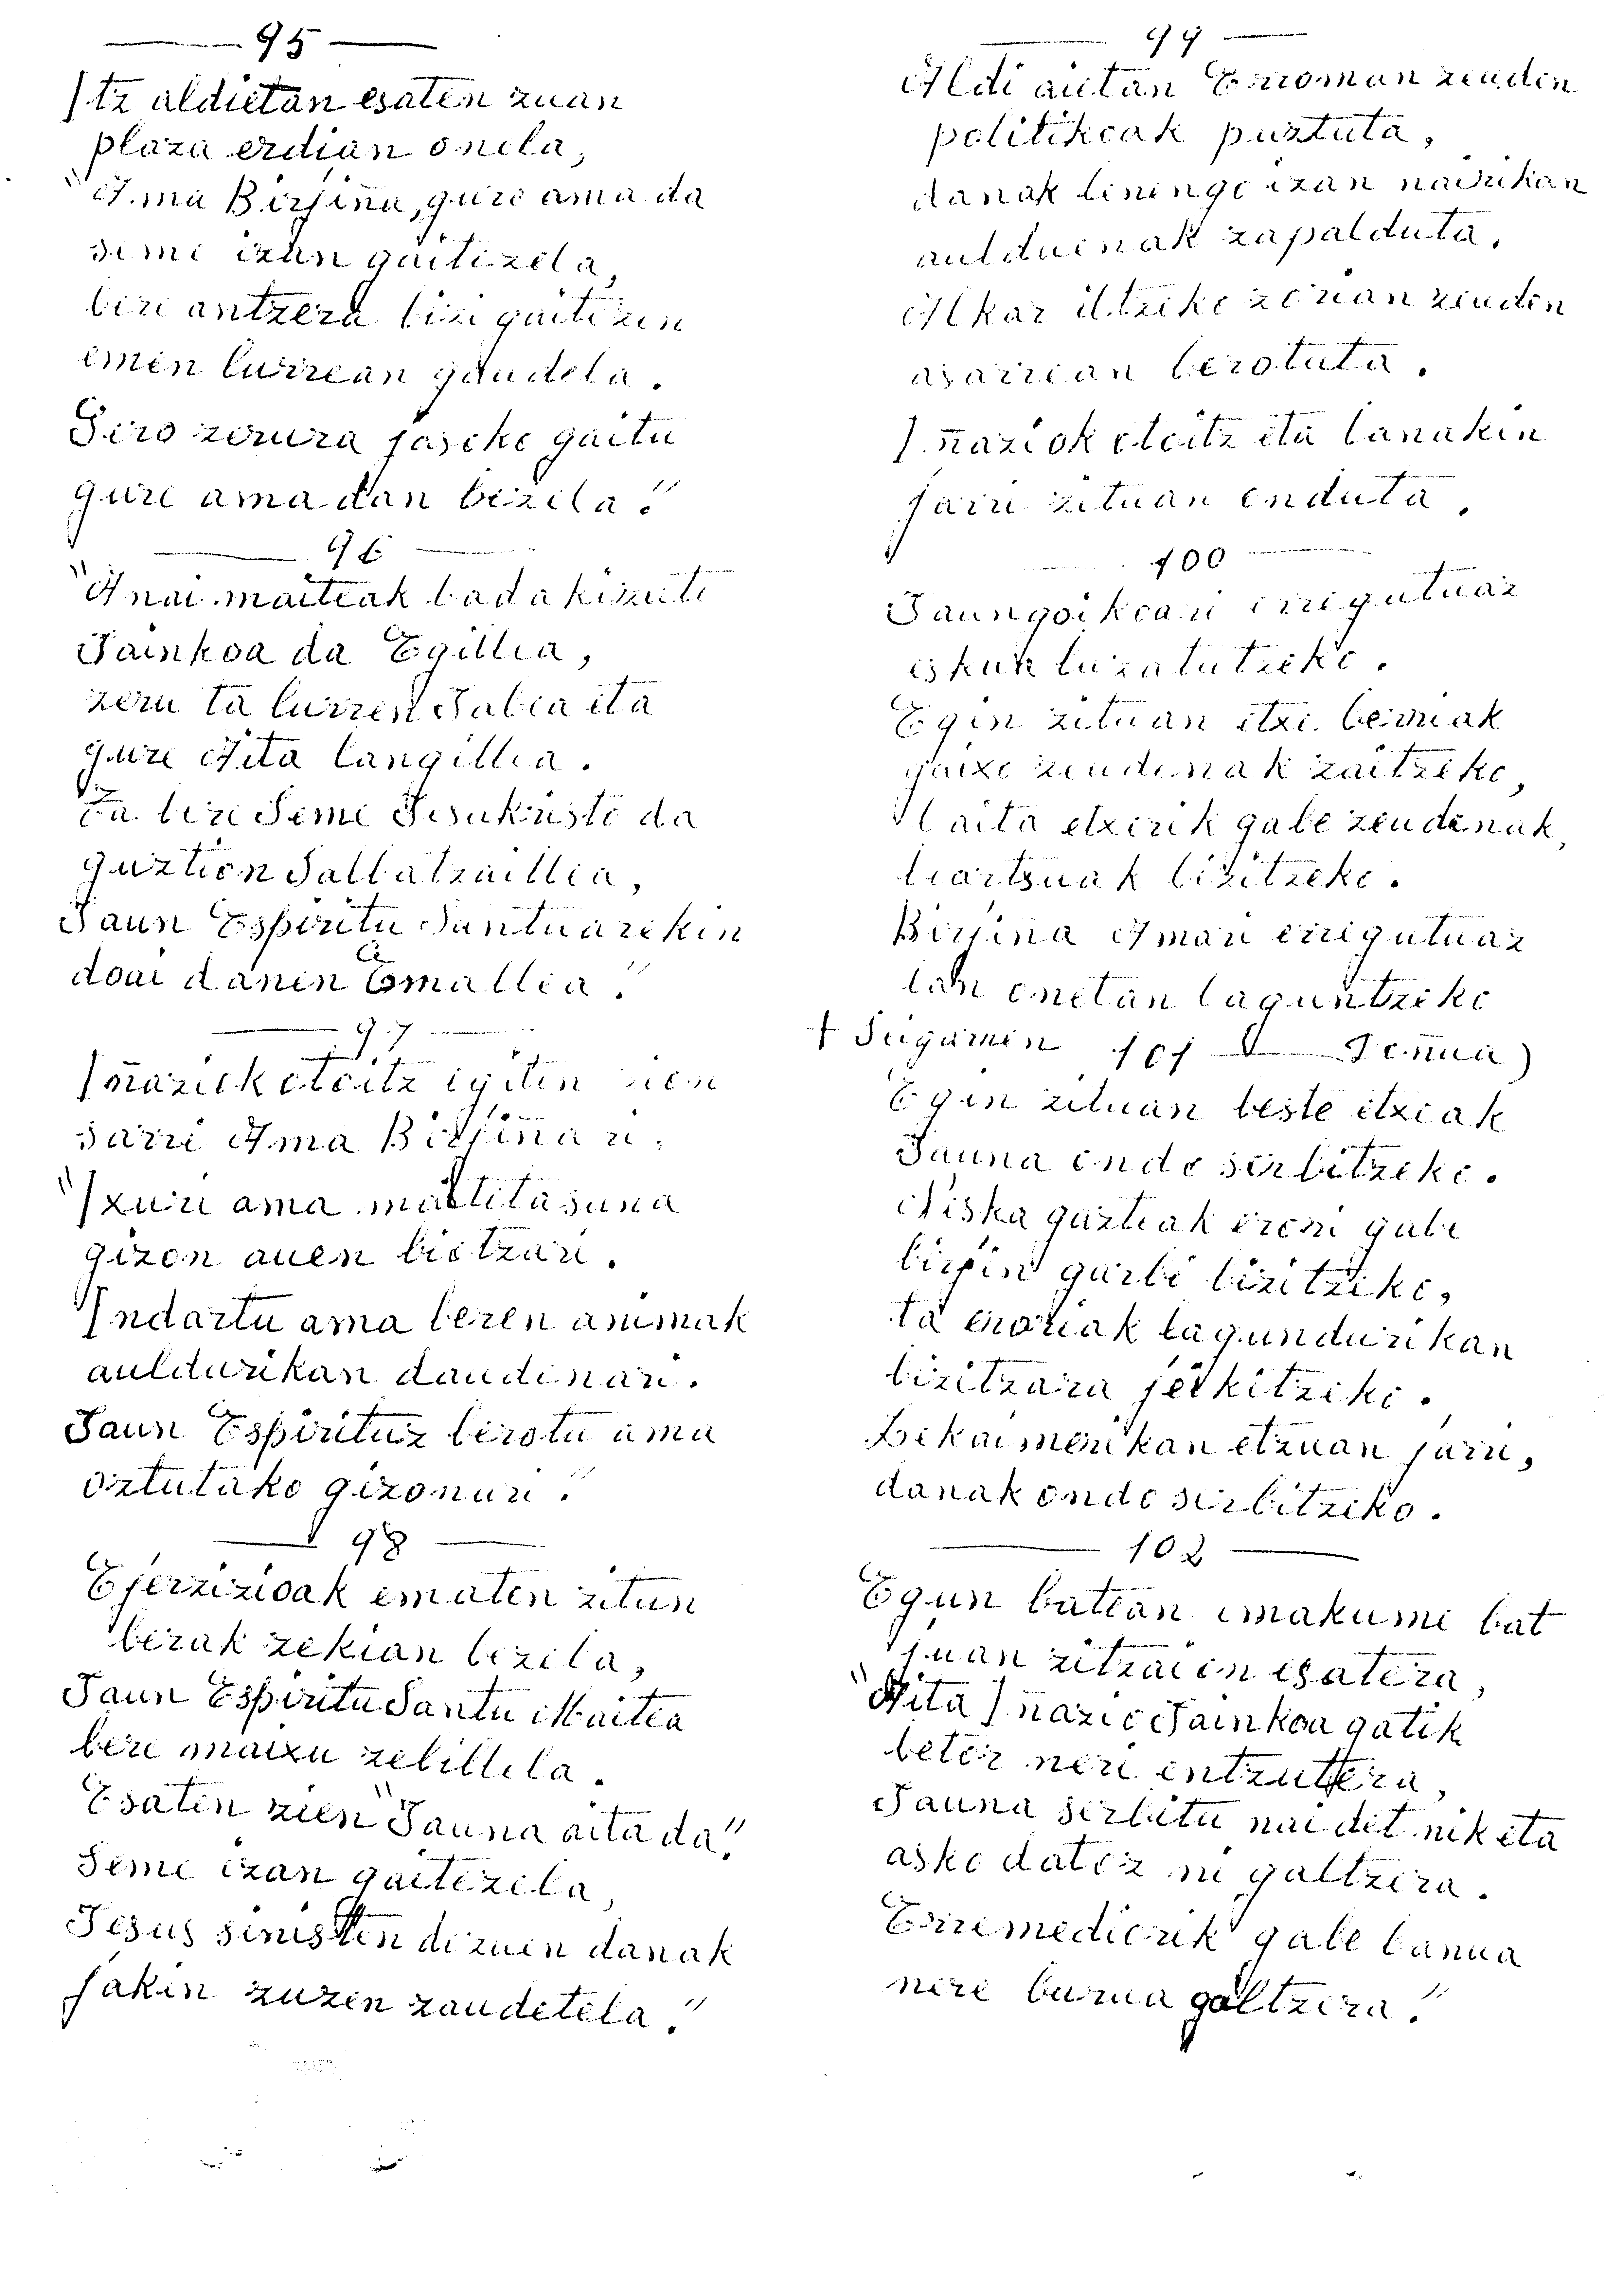 95
Itz aldietan esaten zuan
plaza erdian onela,
"Ama Birjiña, gure ama da
seme izan gaitezela,
bere antzera bizi gaitezen
emen lurrean gaudela.
Gero zerura jasoko gaitu
gure ama dan bezela."
96
"Anai maiteak badakizute
Jainkoa da Egillea,
zeru ta lurren Jabea eta
gure Aita langillea.
Ta bere Seme Jesukristo da
guztion Salbatzaillea,
Jaun Espiritu Santuarekin
doai danen Emallea."
97
Iñaziok otoitz egiten zion
sarri Ama Birjiñari.
"Ixuri ama maitetasuna
gizon auen biotzari.
Indartu ama beren animak
auldurikan daudenari.
Jaun Espirituz berotu ama
oztutako gizonari."
98
Ejerzizioak ematen zitun
berak zekian bezela,
Jaun Espiritu Santu Maitea
bere maixu zebillela.
Esaten zien "Jauna aita da."
Seme izan gaitezela,
Jesus sinisten dezuen danak
jakin zuzen zaudetela."
99
Aldi aietan Erroman zeuden
politikoak puztuta,
danak lenengo izan nairikan
aulduenak zapalduta.
Alkar iltzeko zorian zeuden
asarrean berotuta.
Iñaziok otoitz eta lanakin
jarri zituan enduta.
100
Jaungoikoari erregutuaz
eskuk luzatutzeko.
Egin zituan etxe berriak
gaixo zeudenak zaitzeko,
Baita etxerik gabe zeudenak,
beartsuak bizitzeko.
Birjina Amari erregutuaz
lan onetan laguntzeko
+ Jugarren 101 Jenua)
Egin zituan beste etxeak
Jauna ondo serbitzeko.
Neska gazteak erori gabe
birjin garbi bizitzeko,
ta eroriak lagundurikan
bizitzara jeikitzeko.
Bekaimenikan etzuan jarri,
danak ondo serbitzeko.
102
Egun batean emakume bat
juan zitzaion esatera,
"Aita Iñazio Jainkoa gatik
betor neri entzutera,
Jauna serbitu nai det nik eta
asko datoz ni galtzera.
Erremediorik gabe banua
nere burua galtzera."